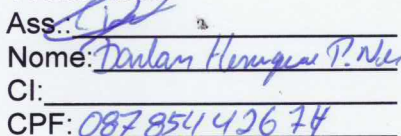 Ass.:
Nome: Darlan Henrique P.
CI:
CPF: 087 854 426 74